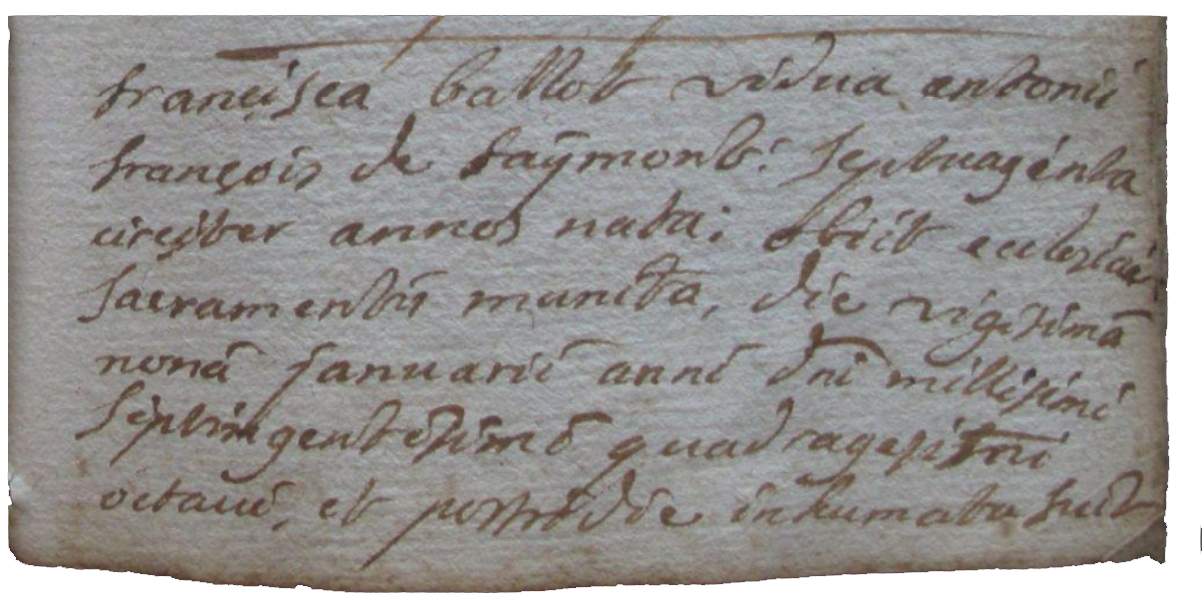 francisca ballot vidua antonii
françois de faÿmont: septuagenta
circiter annos nata; obiit ecclesiae
sacramentis munita, die vigesimâ
nonâ januarii anni dni millesimi
septingentesimi quadragesimi
octavi, et postridie inhumata fuit